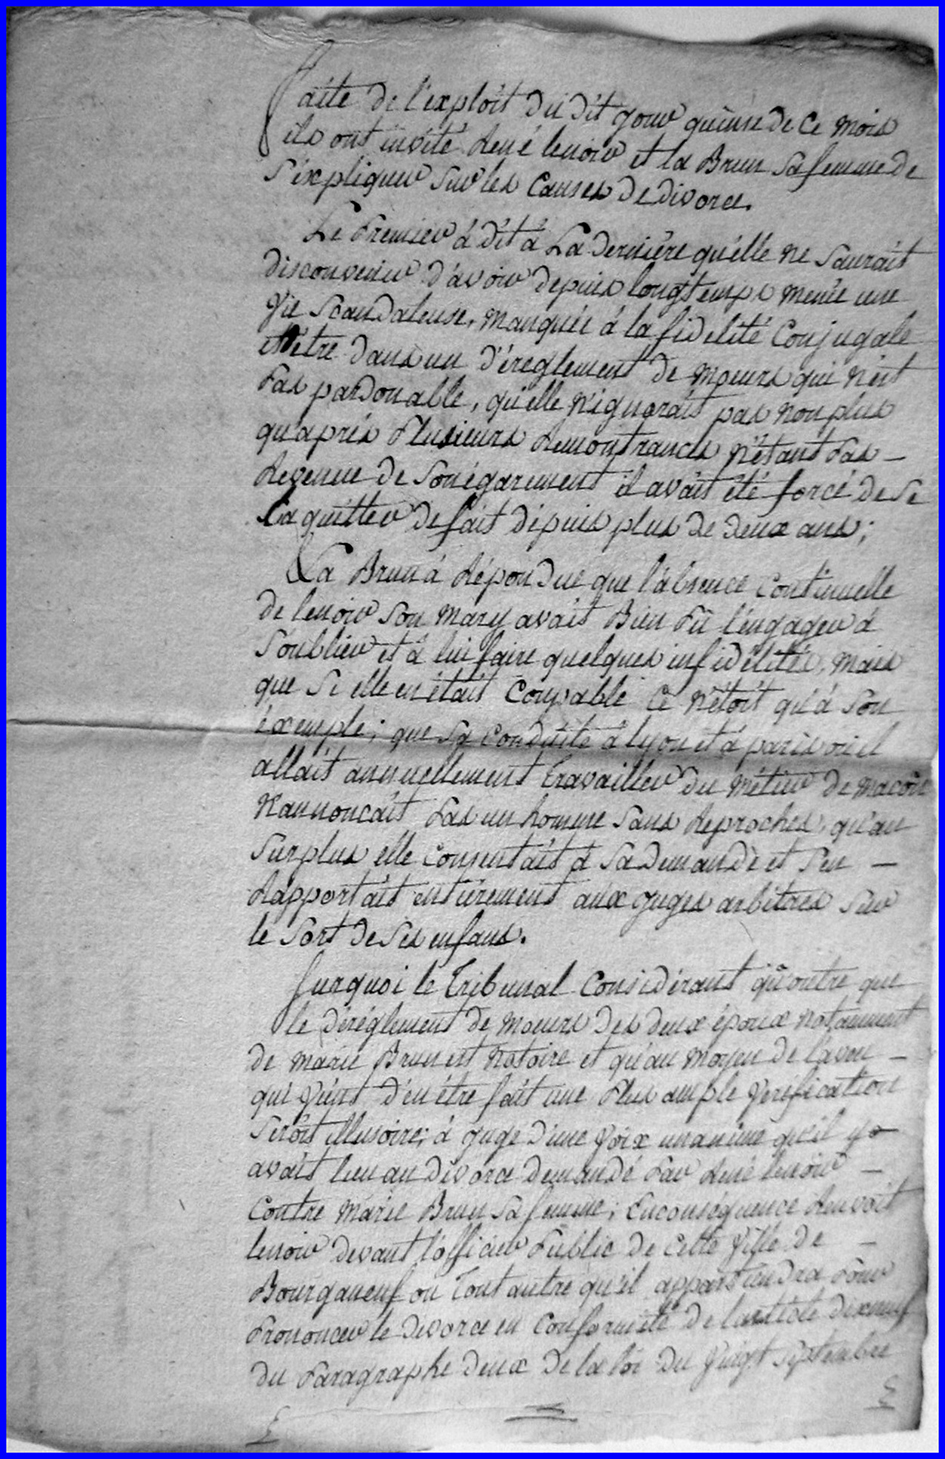 faite de l'exploit du dit jour quinse de ce mois
ils ont invité René lenoir et la Brun sa femme de
s'expliquer sur les causes de divorce.
Le Premier à dit à La dernière qu'elle ne saurait
disconvenir d'avoir depuis longtemps menée une
vie scandaleuse, manquée à la fidelité conjugale
être dans un d'éreglement de moeurs qui n'est
Pas pardonable, qu'elle n'ignorait pas non plus
qu'après Plusieurs Remontrances n'étant Pas
Revenue de son égarement il avait été forcé de se
la quitter de fait dépuis plus de deux ans;
La Brun à Répondue que l'absence continuelle
de lenoir son mary avait Bien Pû l'engager à
s'oublier et à lui faire quelques infidélités, mais
que si elle en était coupable ce n'étoit qu'à son
éxemple; que sa conduite à lyon et à paris où il
allait annuellement travailler du métier de macon
n'annonçait Pas un homme sans Reproches, qu'au
surplus elle consentait à sa demande et s'en
Rapportait entièrement aux juges arbitres sur
le sort de ses enfans.
surquoi le Tribunal considérant qu'outre que
le déréglement de moeurs des deux époux notamment
de marie Brun est notoire et qu'au moyen de l'aveu
qui vient d'en être fait une Plus ample verification
seroit illusoire; à jugé d'une voix unanime qu'il y
avait lieu au divorce demandé Par René lenoir
contre marie Brun sa femme; en conséquence Renvoit
lenoir devant l'officier Public de cette ville de
Bourganeuf ou tout autre qu'il appartiendra Pour
Prononcer le divorce en conformité de l'article dixneuf
du Paragraphe deux de la loi du vingt septembre